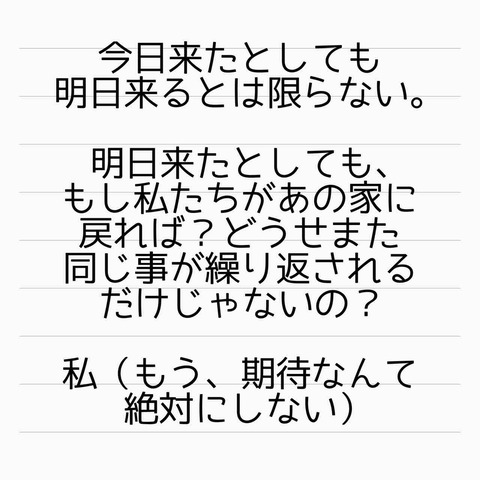 今日来たとしても
明日来るとは限らない。
明日来たとしても、
もし私たちがあの家に
戻れば？どうせまた
同じ事が繰り返される
だけじゃないの？
私（もう、期待なんて
絶対にしない）